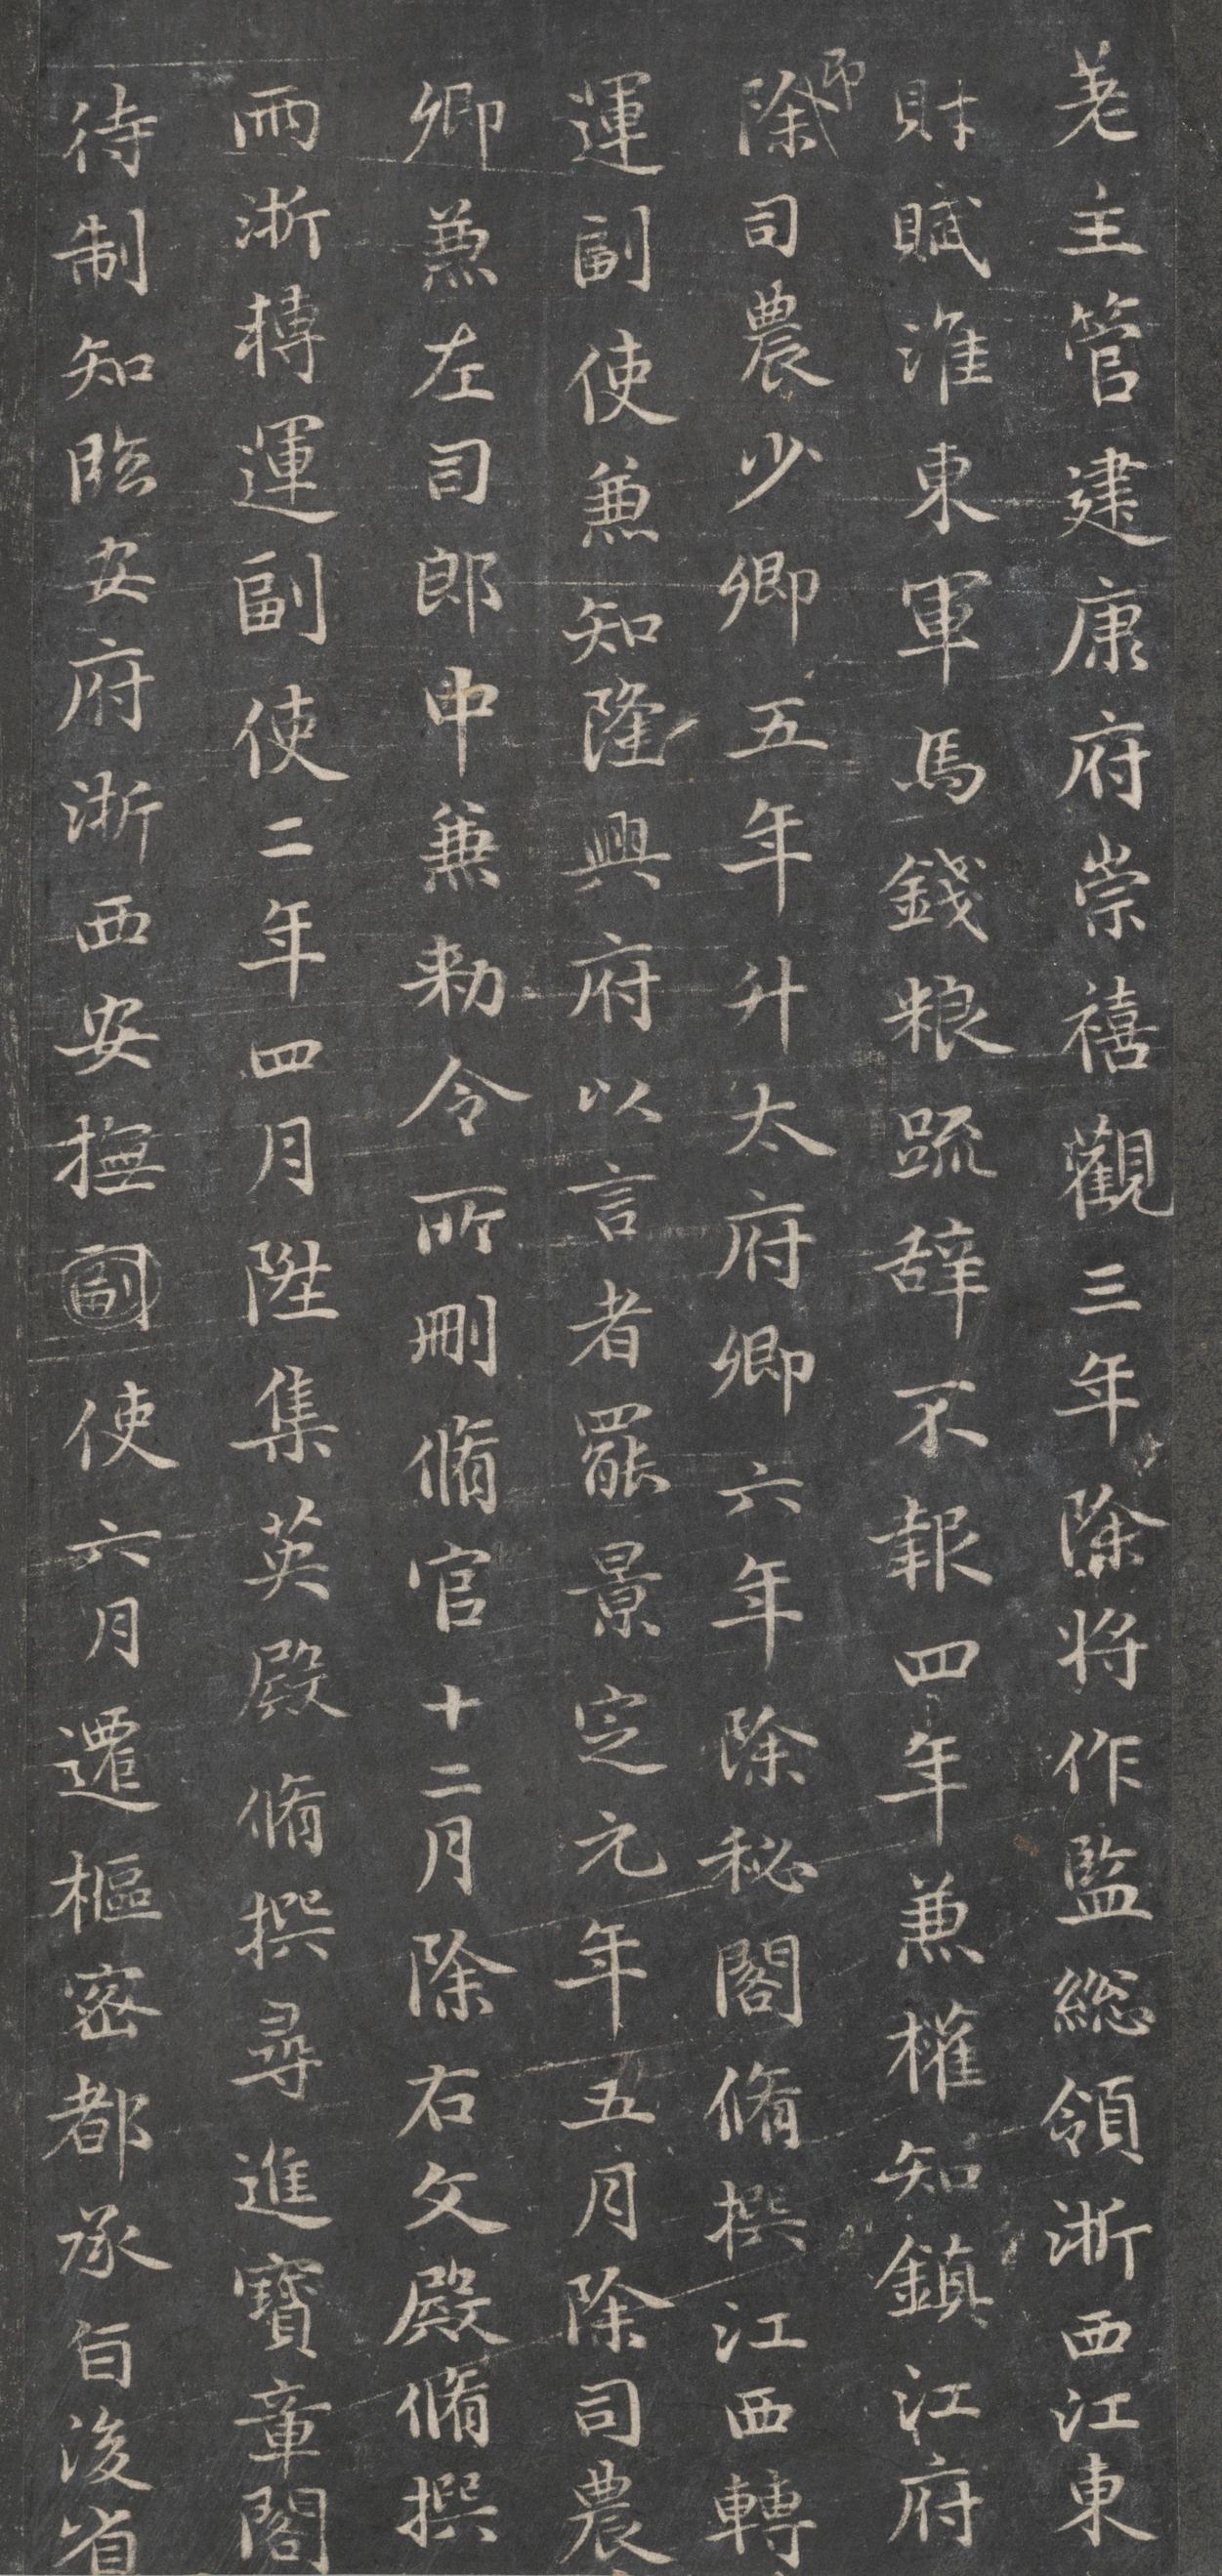 差主管建康府崇禧觀三年除将作監総領浙西江東
財賦淮東軍馬錢粮䟽辞不報四年兼權知鎮江府
除司農少卿五年升太府卿六年除秘閣脩撰江西轉
運副使兼知隆興府以言者罷景定元年五月除司農
卿兼左司郎中兼勑令所刪脩官十二月除右文殿脩撰
兩浙轉運副使二年四月陞集英殿脩撰尋進寶章閣
待制知臨安府浙西安撫副使六月遷樞密都承旨後省